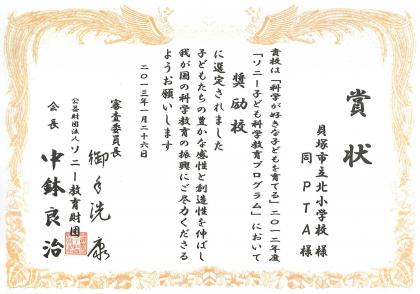 賞状
貝塚市立北小学校 様
同 PTA 様
貴校は「科学が好きな子どもを育てる」二〇一二年度
「ソニー子ども科学教育プログラム」において
奨励校
に選定されました
子どもたちの豊かな感性と創造性を伸ばし
我が国の科学教育の振興にご尽力くださる
ようお願いします
二〇一三年一月二十六日
審査委員長
御手洗 康
公益財団法人 ソニー教育財団
会長 中鉢良治